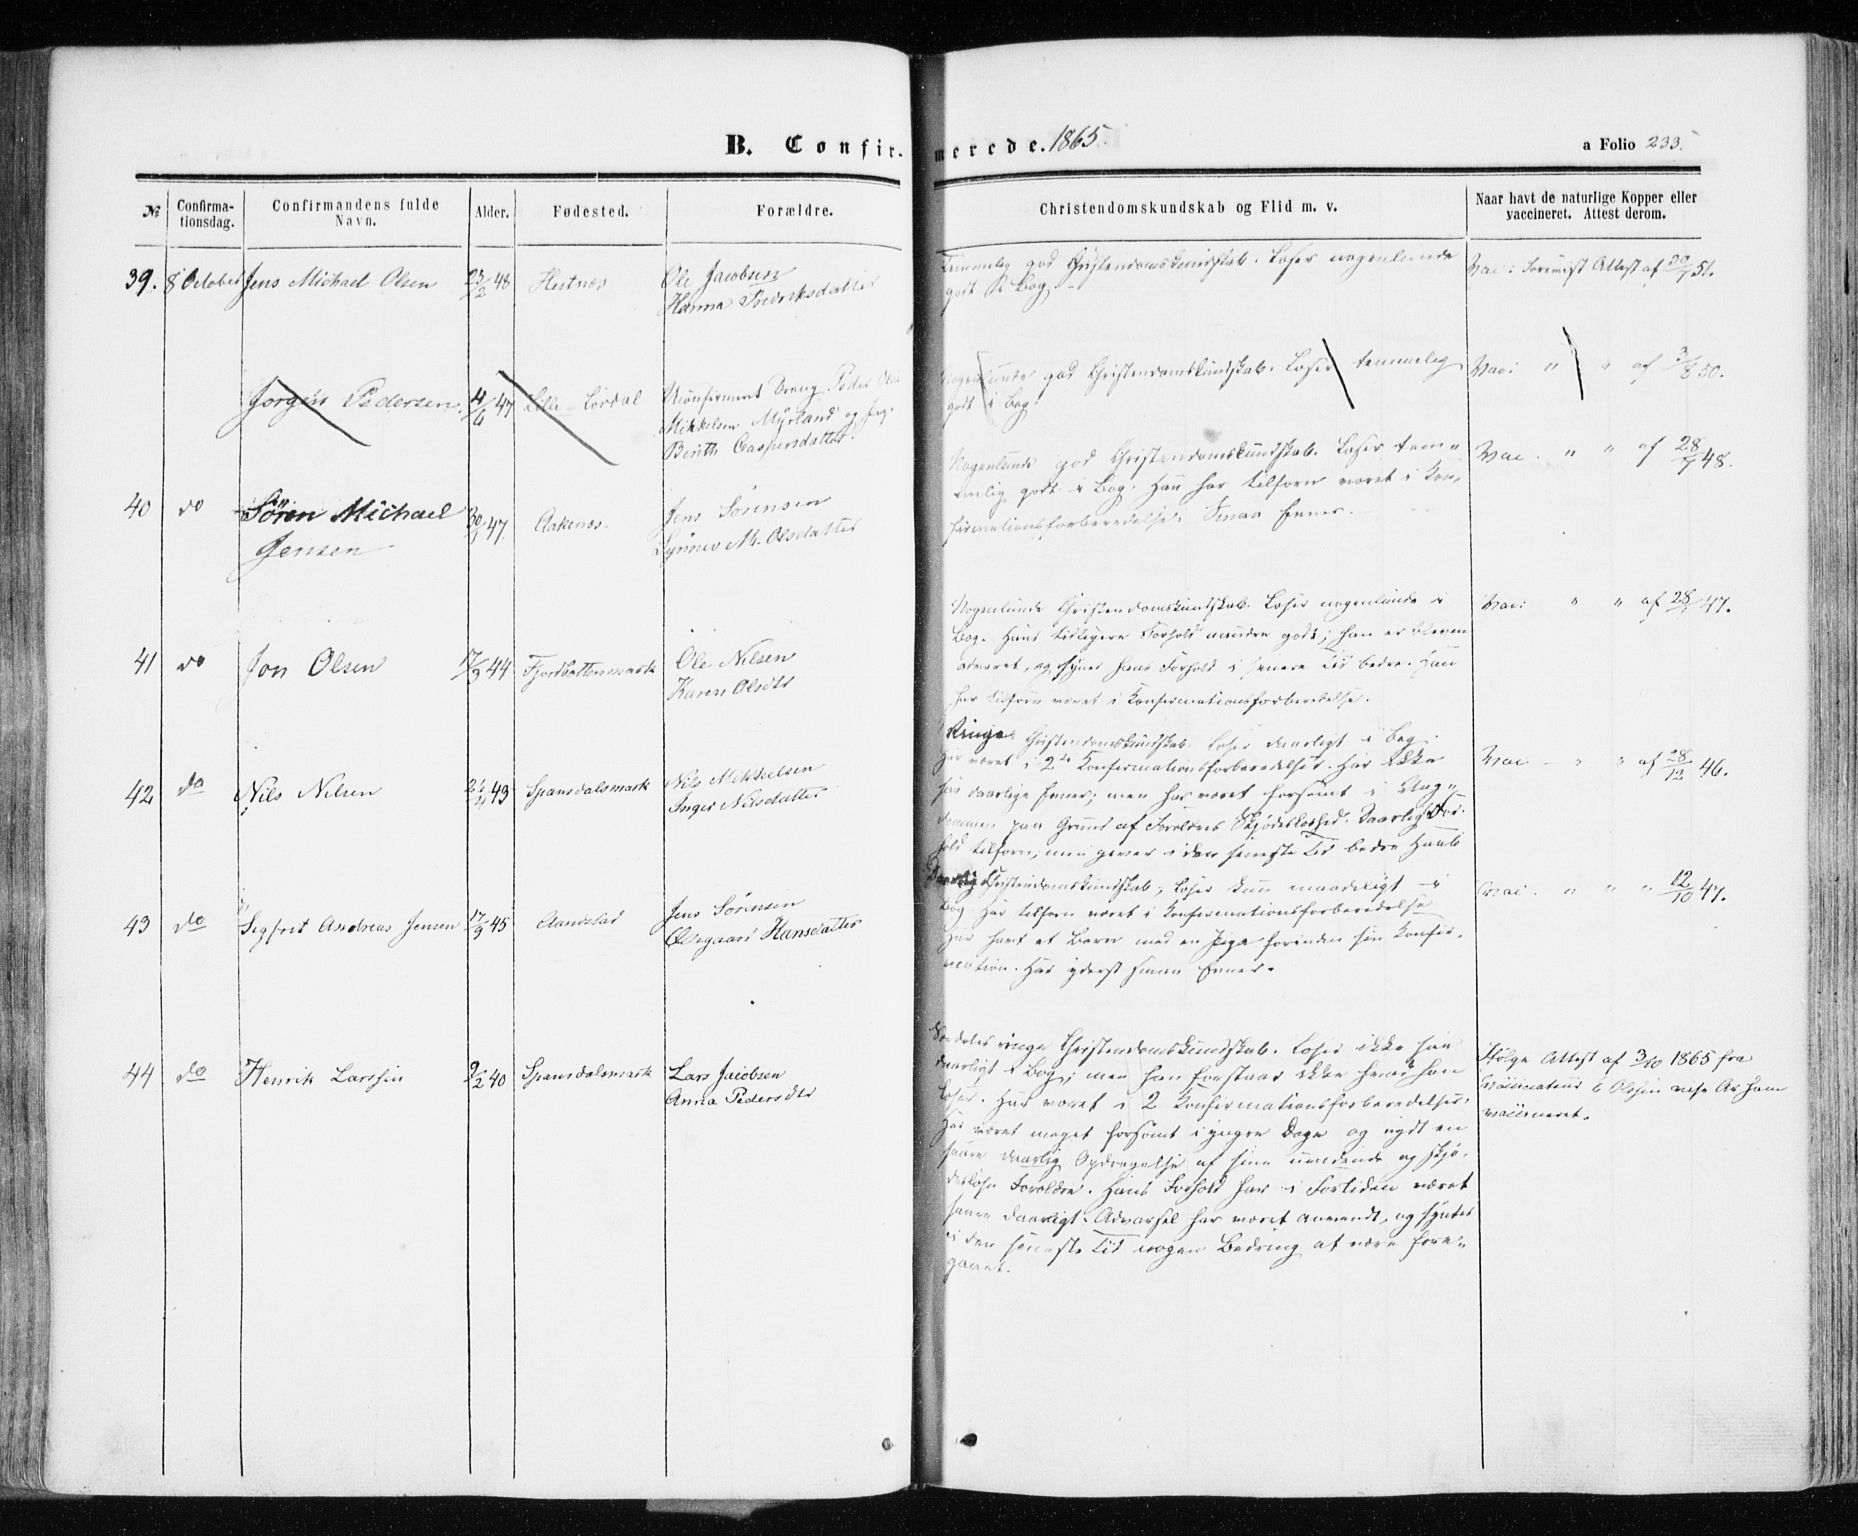 B. Confir-
merede. 1865.
a Folio 233.
№
Confirma-
tionsdag.
Confirmandens fulde
Navn.
Alder.
Fødested.
Forældre.
Christendomskundskab og Flid m. v.
Naar havt de naturlige Kopper eller
vaccineret. Attest derom.
39. 8 October Jens Michael Olsen 23/2 48 Hestnæs
Ole Jacobsen
Hanna Fredriksdatter
Temmelig god Christendomskundskab. Læser nogenlunde
godt i Bog.
Vac: Forevist Attest af 51.
Jørgen Pedersen. 4/6 47 Lille-Lørdal
Uconfirmert Dreng Peder
Mikkelsen Myrland og
Berith Caspersdatter.
Nogenlunde god Christendomskundskab. Læser temmelig
godt i Bog.
Vac: " " af 3/8 50.
40 do Sören Michael
Jensen
47. Aakenes.
Jens Sørensen
M. Olsdatter
Nogenlunde god Christendomskundskab. Læser tem-
melig godt i Bog. Han har tilforn været i Con-
firmationsforberedelse. Smaa Evner.
Vac. " " af 28/7 48.
41 do Jon Olsen 17/3 44 Fjordbottenmark
Ole Nilsen
Karen Olsdtr
Nogenlunde Christendomskundskab. Læser nogenlunde i
Bog. Hans tidligere Forhold mindre godt; han er bleven
advaret, og synes hans Forhold i senere Tid bedre. Han
har tilforn været i Konfirmationsforberedelse.
Vac: " " af 47.
42 do Nils Nilsen 43 Spansdalsmark
Nils Mikkelsen
Inger Nilsdatter
Ringe Christendomskundskab. Læser daarligt i Bog.
Har været i 2de Konfirmationsforberedelser. Har ikke
saa daarlige Evner; men har været forsømt i Ung-
dommen paa Grund af Forældres Skjødesløshed. Daarligt For-
hold tilforn; men giver i den seneste Tid bedre Haab
Vac. " " af 28/12 46.
43 do Sigfrit Andreas Jensen 17/9 45 Aanstad
Jens Sørensen
Ødegaard Hansdatter
Daarlig Christendomskundskab; læser kun maadeligt i
Bog. Har tilforn været i Konfirmationsforberedelse
Har havt et Barn med en Pige forinden sin Konfir-
mation. Har yderst smaa Evner.
Vac. " " " 12/10 47.
44 do Henrik Larssen 9/2 40 Spansdalsmark
Lars Jacobsen
Anna Pedersdtr
Særdeles ringe Christendomskundskab. Læser ikke saa
daarligt i Bog; men han forstaar ikke hvad han
læser. Har været i 2 Konfirmationsforberedelser.
Har været meget forsømt i yngre Dage og nydt en
saare daarlig Opdragelse af sine uvidende og skjø-
desløse Forældre. Hans Forhold har i Fortiden været
saare daarligt. Advarsel har været anvendt, og synes
i den seneste Tid nogen Bedring at være fore-
gaaet.
Ifølge Attest af 3/10 1865 fra
Vaccinateur Olssen er ham
vaccineret.